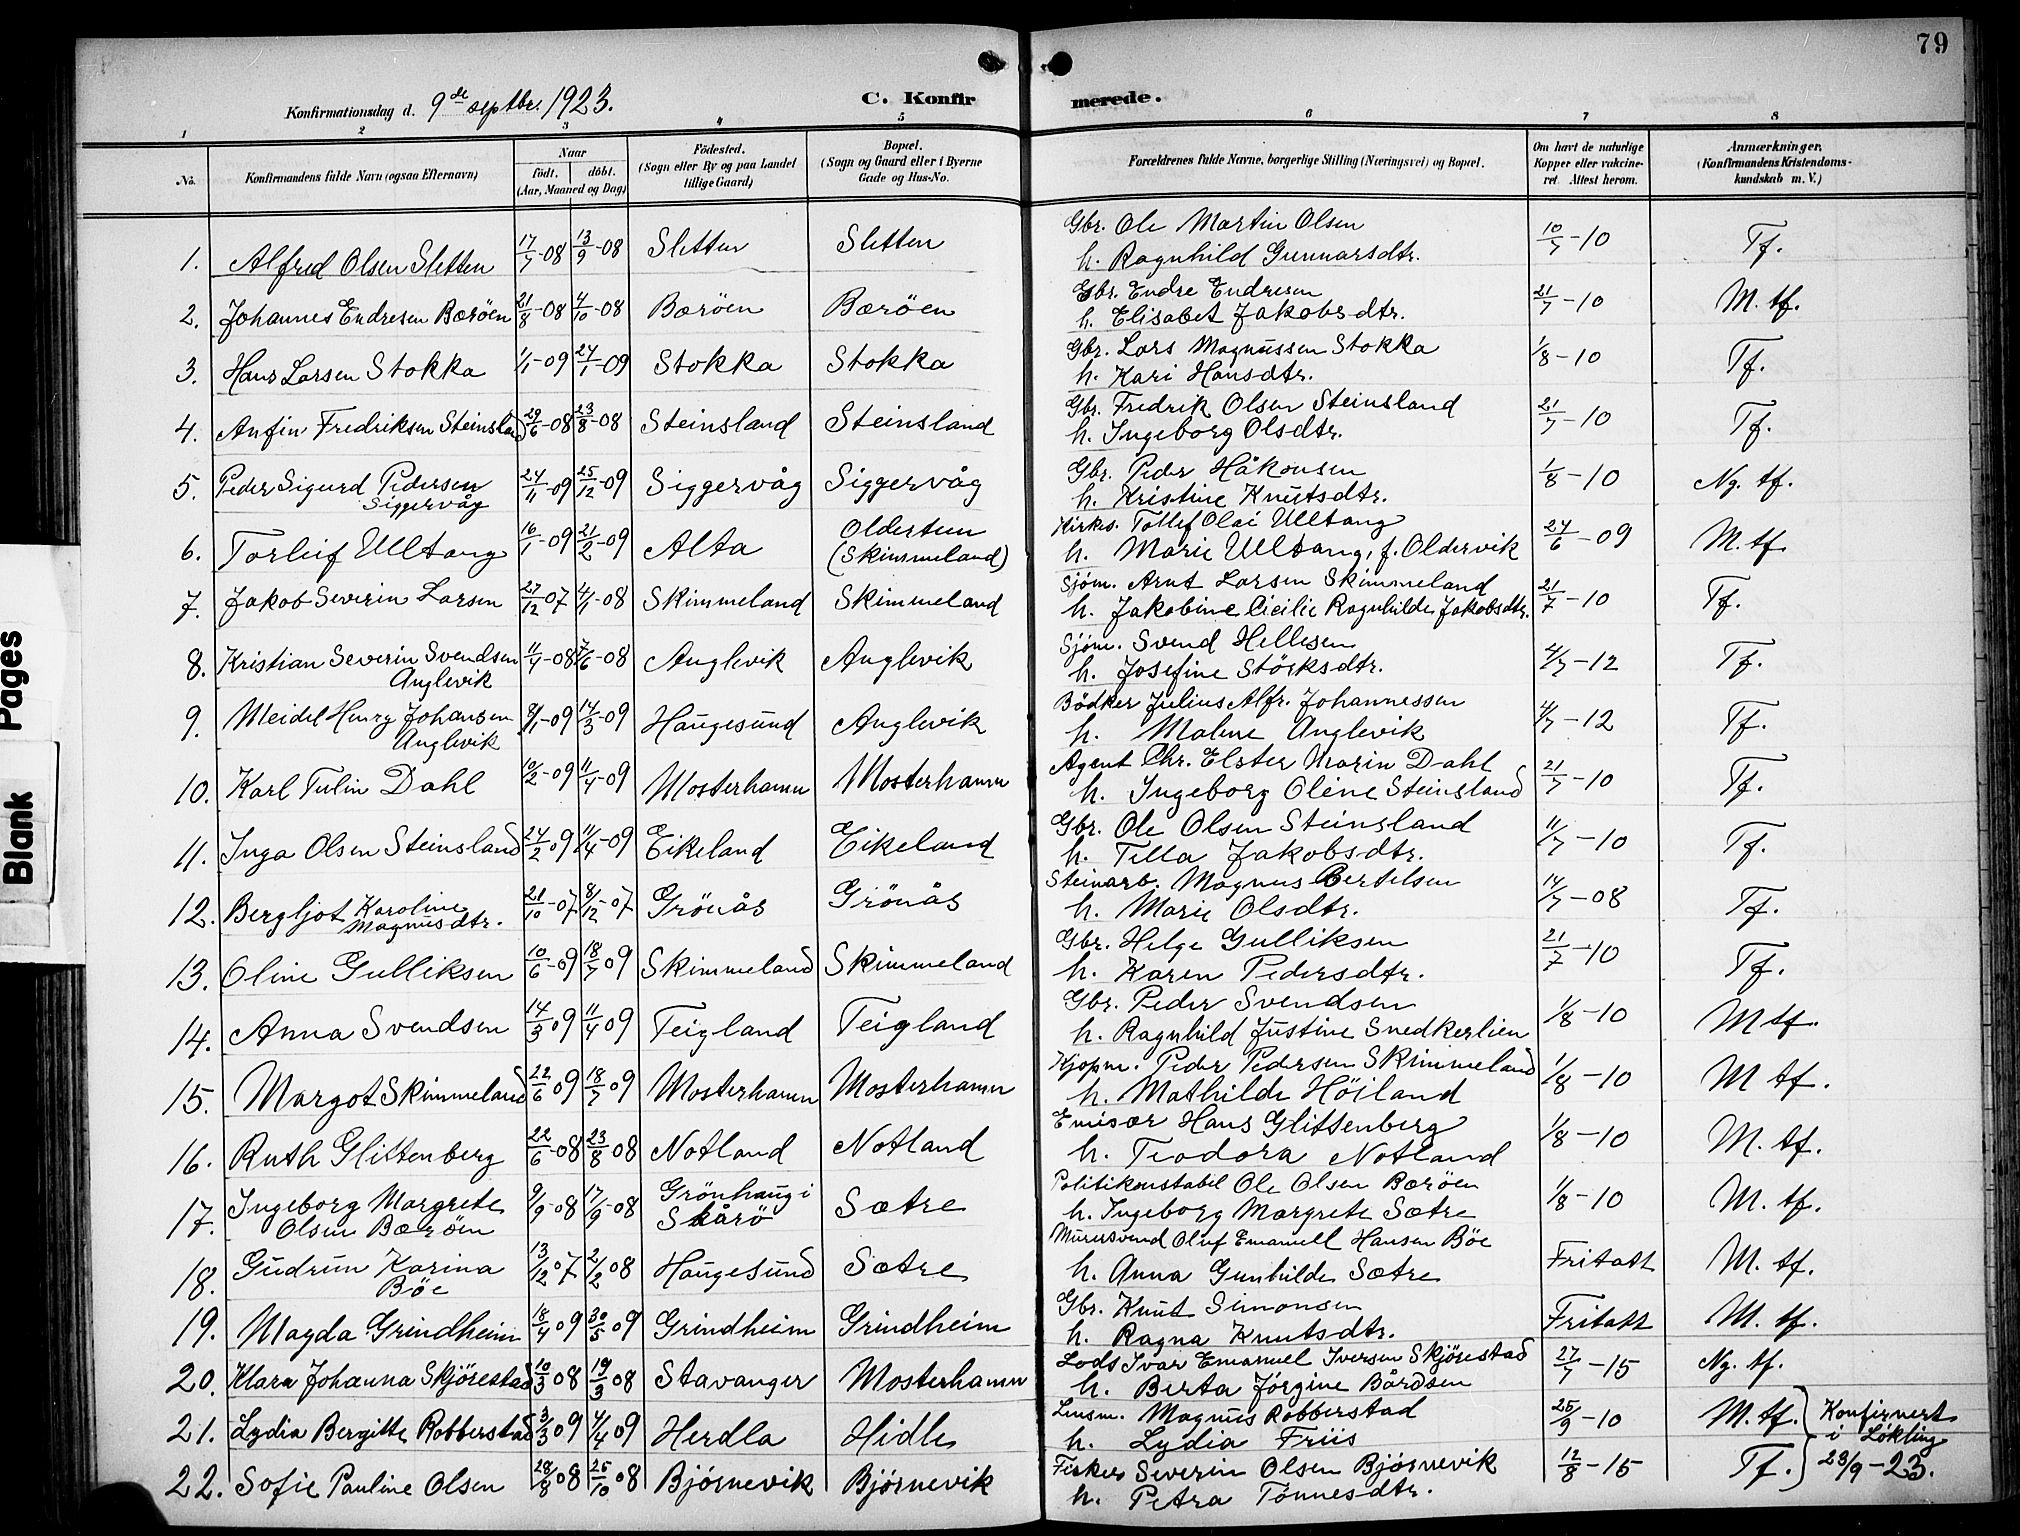 79
Konfirmationsdag d. 9de septbr. 1923.
C. Konfirmerede.
1 2 3 4 5 6 7 8
No.
Konfirmandens fulde Navn (ogsaa Efternavn)
Naar
født. døbt.
(Aar, Maaned og Dag)
Fødested.
(Sogn eller By og paa Landet
tillige Gaard)
Bopæl.
(Sogn og Gaard eller i Byerne
Gade og Hus-No.
Forældrenes fulde Navne, borgerlige Stilling (Næringsvei) og Bopæl.
Om havt de naturlige
Kopper eller vakcine-
ret. Attest herom.
Anmærkninger.
(Konfirmandens Kristendoms-
kundskab m. V.)
1. Alfred Olsen Sletten 17/7-08 13/9-08 Sletten Sletten Gbr. Ole Martin Olsen 10/7-10 Tf.
h. Ragnhild Gunnarsdtr.
2. Johannes Endresen Bærøen 21/8-08 4/10-08 Bærøen Bærøen Gbr. Endre Endresen 21/7-10 M. tf.
h. Elisabet Jakobsdtr.
3. Hans Larsen Stokka 1/1-09 24/1-09 Stokka Stokka Gbr. Lars Magnussen Stokka 1/8-10 Tf.
h. Kari Hansdtr.
4. Anfin Fredriksen Steinsland 29/6-08 23/8-08 Steinsland Steinsland Gbr. Fredrik Olsen Steinsland 21/7-10 Tf.
h. Ingeborg Olsdtr.
5. Peder Sigurd Pedersen 24/11-09 25/12-09 Siggervåg Siggervåg Gbr. Peder Håkonsen 1/8-10 Ng. tf.
Siggervåg h. Kristine Knutsdtr.
6. Torleif Ulltang 16/1-09 21/2-09 Alta Oldertun Kirkes. Tollef Olai Ulltang 24/6-09 M. tf.
(Skimmeland) h. Marie Ulltang, f. Oldervik
7. Jakob Severin Larsen 27/12-07 4/1-08 Skimmeland Skimmeland Sjøm. Arnt Larsen Skimmeland 21/7-10 Tf.
h. Jakobine Cicilie Ragnhilde Jakobsdtr.
8. Kristian Severin Svendsen 11/4-08 7/6-08 Anglevik Anglevik Sjøm. Svend Hellesen 4/7-12 Tf.
Anglevik h. Josefine Størksdtr.
9. Meidel Henry Johansen 8/1-09 14/3-09 Haugesund Anglevik Bødker Julius Alfr. Johannessen 4/7-12 Tf.
Anglevik h. Malene Anglevik
10. Karl Tulin Dahl 10/2-09 11/4-09 Mosterhamn Mosterhamn Agent Chr. Elster Marin Dahl 21/7-10 Tf.
h. Ingeborg Oline Steinsland
11. Inga Olsen Steinsland 24/2 09 11/4-09 Eikeland Eikeland Gbr. Ole Olsen Steinsland 11/7-10 Tf.
h. Tella Jakobsdtr.
12. Bergljot Karoline 21/10-07 8/12-07 Grönås Grönås Steinarb. Magnus Bertelsen 14/7-08 Tf.
Magnusdtr. h. Marie Olsdtr.
13. Oline Gulliksen 10/6-09 18/7 09 Skimmeland Skimmeland Gbr. Helge Gulliksen 21/7-10 Tf.
h. Karen Pedersdtr.
14. Anna Svendsen 14/3 09 11/4 09 Teigland Teigland Gbr. Peder Svendsen 1/8-10 M tf.
h. Ragnhild Justine Snedkerlien
15. Margot Skimmeland 22/6 09 18/7 09 Mosterhamn Mosterhamn Kjøpm. Peder Pedersen Skimmeland 1/8-10 M tf.
h. Mathilde Höiland
16. Ruth Glittenberg 22/6-08 23/8 08 Notland Notland Emisær Hans Glittenberg 1/8-10 M. tf.
h. Teodora Notland
17. Ingeborg Margrete 9/9-08 17/9-08 Grönhaug i Sætre Politikonstabel Ole Olsen Bærøen 1/8-10 M. tf.
Olsen Bærøen Skårö h. Ingeborg Margrete Sætre
18. Gudrun Karina 13/12 07 2/2 08 Haugesund Sætre Murersvend Oluf Emanuell Hansen Böe Fritatt M. tf.
Böe h. Anna Gunhilde Sætre
19. Magda Grindheim 18/4 09 30/5 09 Grindheim Grindheim Gbr. Knut Simonsen Fritatt M. tf.
h. Ragna Knutsdtr.
20. Klara Johanna Skjörestad 10/3 08 19/3 08 Stavanger Mosterhamn Lods Ivar Emanuel Iversen Skjörestad 27/7-15 Ng. tf.
h. Berta Jörgine Bårdsen
21. Lydia Bergitte Robberstad 3/3 09 4/4 09 Herdla Hidle Lensm. Magnus Robberstad 25/9-10 M. tf. Konfirmert
h. Lydia Friis i Løkling
22. Sofie Pauline Olsen 28/8 08 25/10 08 Bjørnevik Bjørnevik Fisker Severin Olsen Bjørnevik 12/8-15 Tf. 23/9-23.
h. Petra Tønnesdtr.
Blank Pages